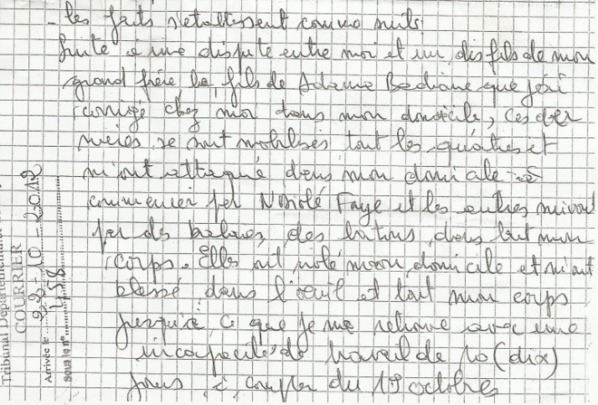 - les faits s'etablissent comme suit:
Suite à une dispute entre moi et un des fils de mon
grand frère le fils de Adama Badiane que j'ai
corrigé chez moi dans mon domicile, ces der
nieres se sont mobilisés tout les quatres et
m'ont attaqué dans mon domicile à
commencer par Faye et les autres suivant
par des balaies, des batons, dans tout mon
corps. Elles ont violé mon domicile et m'ont
blessé dans l'oeuil et tout mon corps
jusqu'à ce que je me retrouve avec une
incapacité de travail de 10 (dix)
jours à compter du 19 octobre
Tribunal Départemental
COURRIER
Arrivée le 22-10-2019
Sous le n° 1158